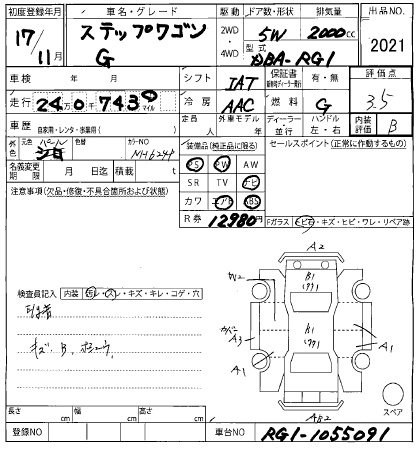 初度登録年月 車名・グレード 駆動 ドア数・形状 排気量 出品NO.
17/11月 ステップワゴン G 2WD・4WD 5W 2000cc 2021
型式 DBA-RG1
車検 年 月 シフト IAT 保証書 有・無 評価点
走行 24万0千743 マイル 冷房 AAC 燃料 G 3.5
車歴 自家用・レンタ・事業用( ) 定員 人 外車モデル年 ディーラー・並行 ハンドル 左・右 内装評価 B
外色 元色 パール シロ 色替 カラーNO NH624P 装備品(純正品に限る) セールスポイント(正常に作動するもの)
PS PW AW
名義変更期限 月 日迄 積載 t SR TV ナビ
注意事項(欠品・修復・不具合箇所および状態) カワ エアB ABS
R券 12980円 Fガラス トビ石・キズ・ヒビ・ワレ・リペア跡
A2
検査員記入 内装 汚レ・スレ・キズ・キレ・コゲ・穴
B1
B1
A3
A1
A1
キズ、B、
スペア
AB2
長さ cm 幅 cm 高さ cm
登録NO 車台NO RG1-1055091